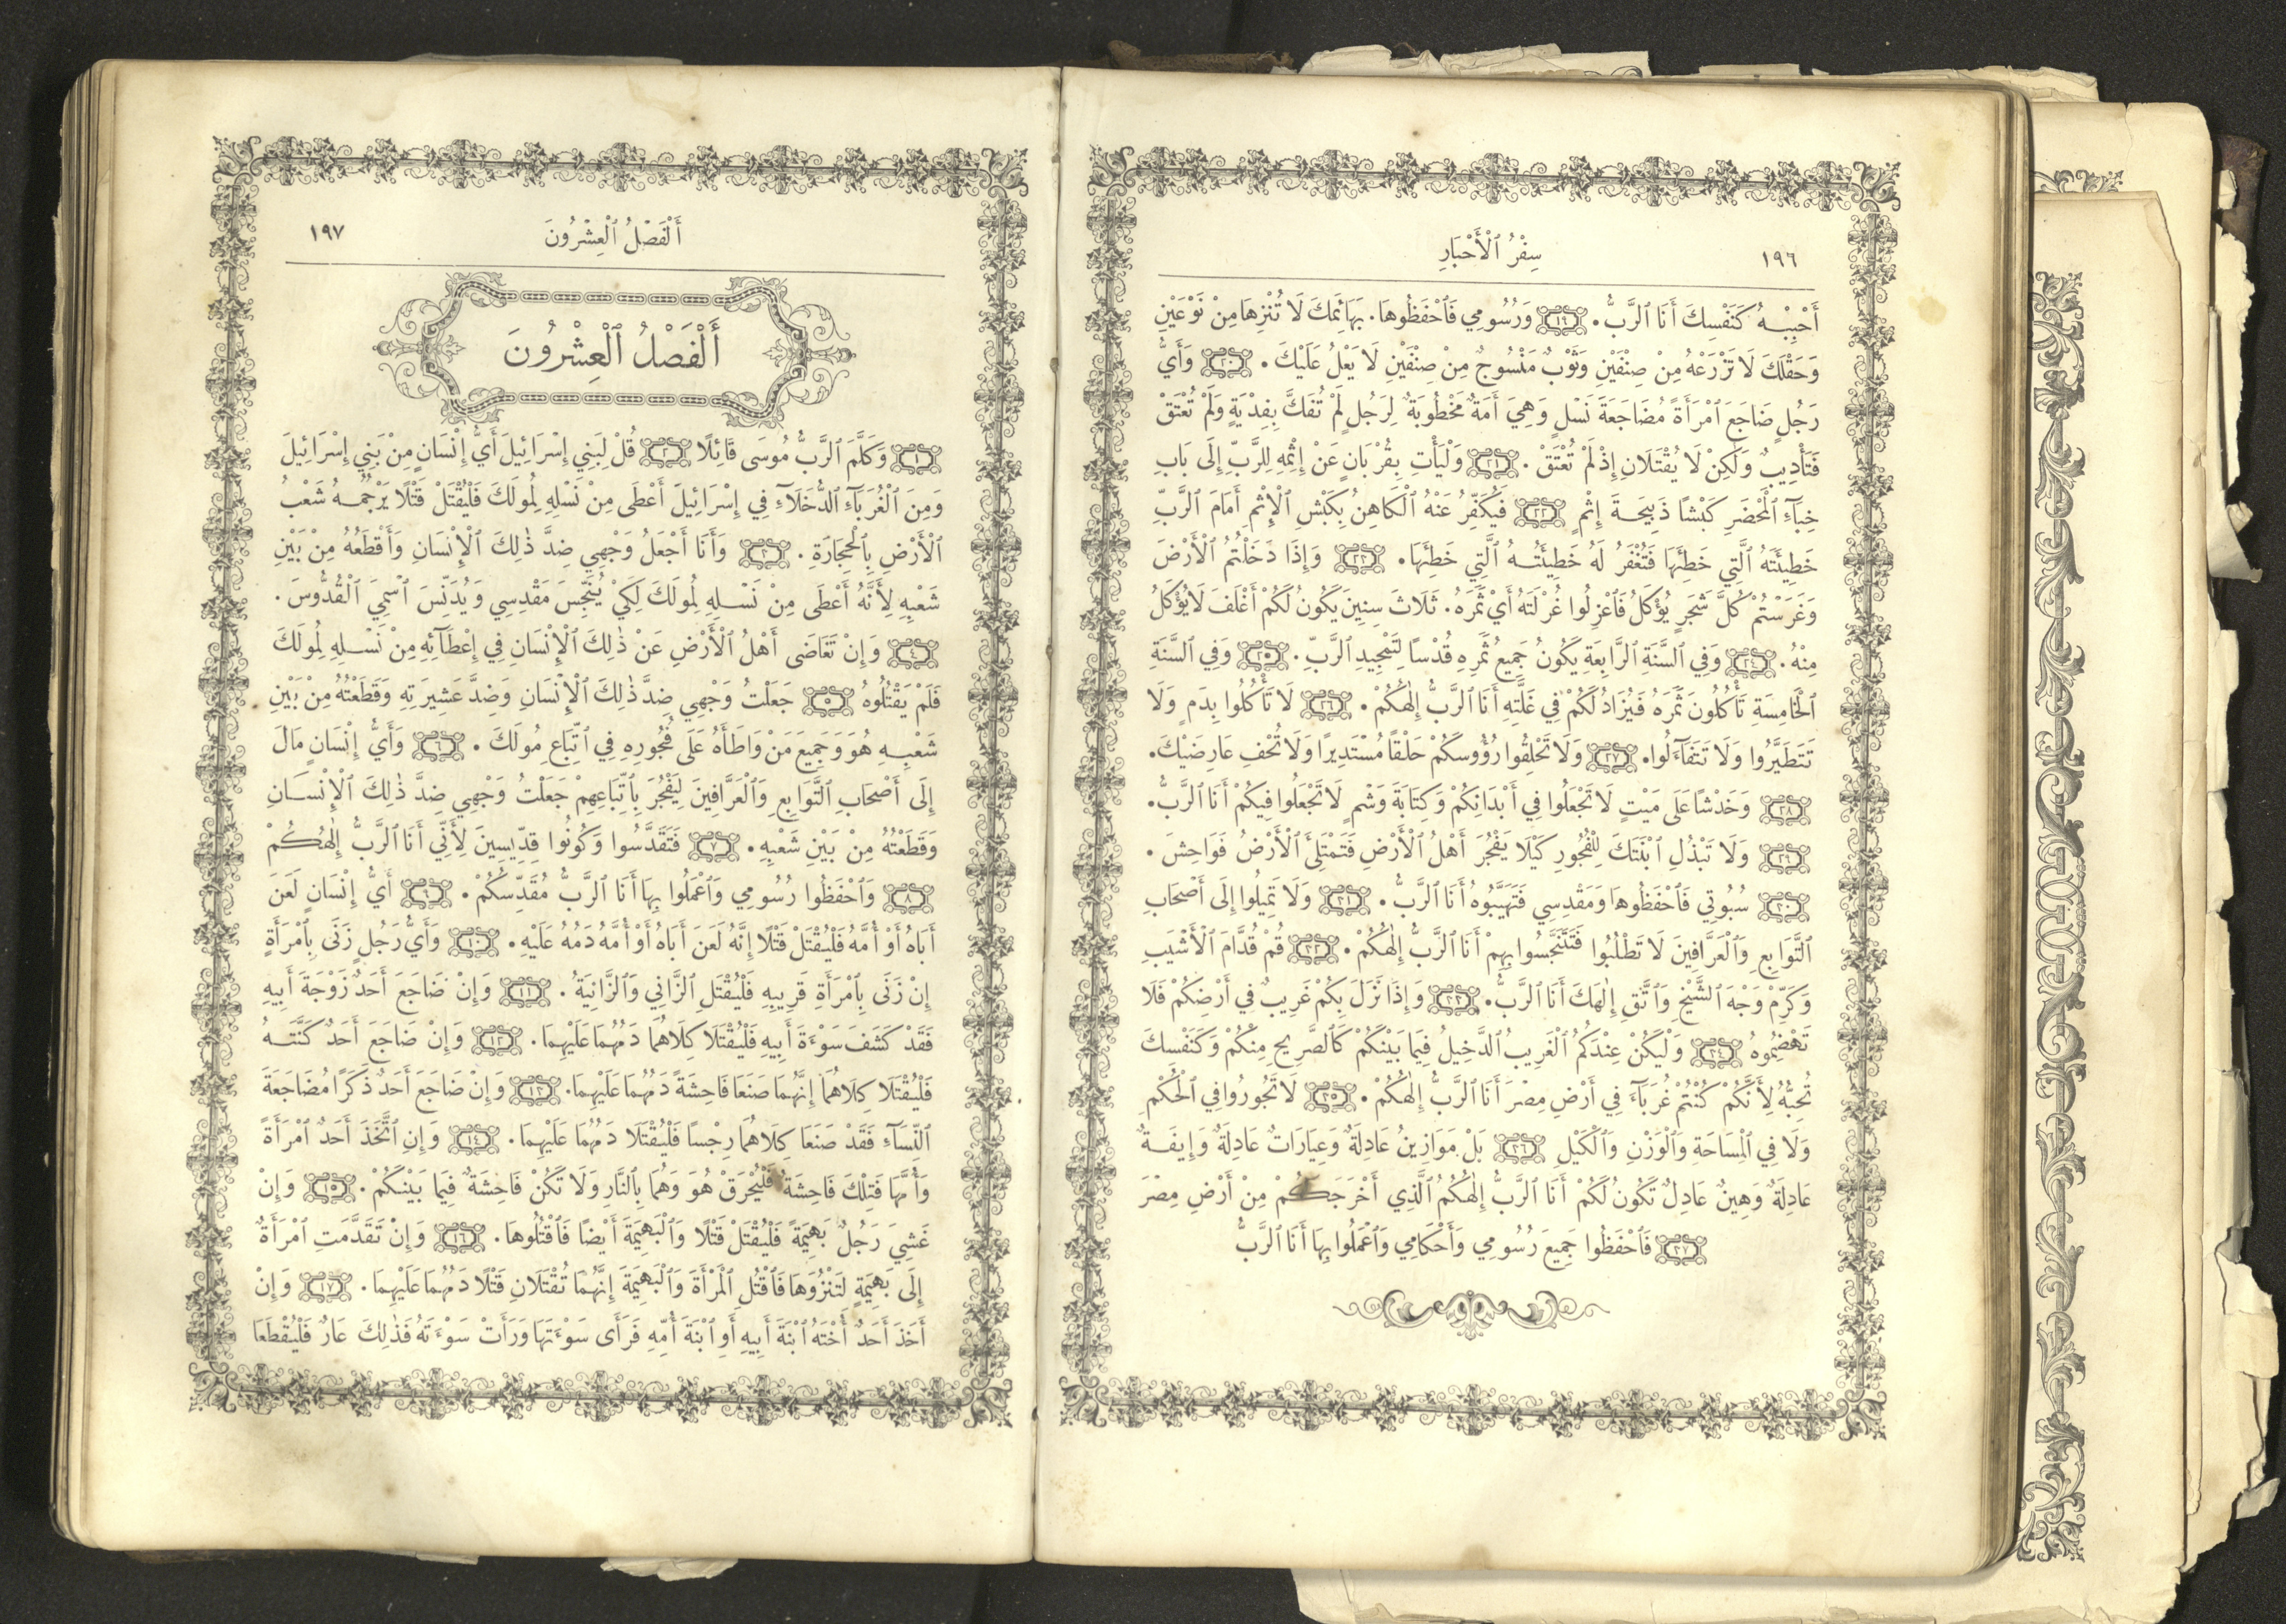 ١٩٦
سِفْرُ ٱلْأَحْبَارِ
أَحْبِبْهُ كَنَفْسِكَ أَنَا ٱلرَّبُّ. ١٩ وَرُسُومِي فَٱحْفَظُوهَا. بَهَائِمَكَ لَا تُنْزِهَا مِنْ نَوْعَيْنِ
وَحَقْلَكَ لَا تَزْرَعْهُ مِنْ صِنْفَيْنِ وَثَوْبٌ مَنْسُوجٌ مِنْ صِنْفَيْنِ لَا يَعْلُ عَلَيْكَ. ٢٠ وَأَيُّ
رَجُلٍ ضَاجَعَ ٱمْرَأَةً مُضَاجَعَةَ نَسْلٍ وَهِيَ أَمَةٌ مَخْطُوبَةٌ لِرَجُلٍ لَمْ تُفَكَّ بِفِدْيَةٍ وَلَمْ تُعْتَقْ
فَتَأْدِيبٌ وَلٰكِنْ لَا يُقْتَلَانِ إِذْ لَمْ تُعْتَقْ. ٢١ وَلْيَأْتِ بِقُرْبَانٍ عَنْ إِثْمِهِ لِلرَّبِّ إِلَى بَابِ
خِبَآءِ ٱلْمَحْضَرِ كَبْشًا ذَبِيحَةَ إِثْمٍ ٢٢ فَيُكَفِّرُ عَنْهُ ٱلْكَاهِنُ بِكَبْشِ ٱلْإِثْمِ أَمَامَ ٱلرَّبِّ
خَطِيئَتَهُ ٱلَّتِي خَطِئَهَا فَتُغْفَرُ لَهُ خَطِيئَتُهُ ٱلَّتِي خَطِئَهَا. ٢٣ وَإِذَا دَخَلْتُمُ ٱلْأَرْضَ
وَغَرَسْتُمْ كُلَّ شَجَرٍ يُؤْكَلُ فَٱعْزِلُوا غُرْلَتَهُ أَيْ ثَمَرَهُ. ثَلَاثَ سِنِينَ يَكُونُ لَكُمْ أَغْلَفَ لَا يُؤْكَلُ
مِنْهُ. ٢٤ وَفِي ٱلسَّنَةِ ٱلرَّابِعَةِ يَكُونُ جَمِيعُ ثَمَرِهِ قُدْسًا لِتَمْجِيدِ ٱلرَّبِّ. ٢٥ وَفِي ٱلسَّنَةِ
ٱلْخَامِسَةِ تَأْكُلُونَ ثَمَرَهُ فَيُزَادُ لَكُمْ فِي غَلَّتِهِ أَنَا ٱلرَّبُّ إِلٰهُكُمْ. ٢٦ لَا تَأْكُلُوا بِدَمٍ وَلَا
تَتَطَيَّرُوا وَلَا تَتَفَآءَلُوا. ٢٧ وَلَا تَحْلِقُوا رُؤُوسَكُمْ حَلْقًا مُسْتَدِيرًا وَلَا تُحْفِ عَارِضَيْكَ.
٢٨ وَخَدْشًا عَلَى مَيْتٍ لَا تَجْعَلُوا فِي أَبْدَانِكُمْ وَكِتَابَةَ وَشْمٍ لَا تَجْعَلُوا فِيكُمْ أَنَا ٱلرَّبُّ.
٢٩ وَلَا تَبْذُلِ ٱبْنَتَكَ لِلْفُجُورِ كَيْلَا يَفْجُرَ أَهْلُ ٱلْأَرْضِ فَتَمْتَلِئَ ٱلْأَرْضُ فَوَاحِشَ.
٣٠ سُبُوتِي فَٱحْفَظُوهَا وَمَقْدِسِي فَتَهَيَّبُوهُ أَنَا ٱلرَّبُّ. ٣١ وَلَا تَمِيلُوا إِلَى أَصْحَابِ
ٱلتَّوَابِعِ وَٱلْعَرَّافِينَ لَا تَطْلُبُوا فَتَتَنَجَّسُوا بِهِمْ أَنَا ٱلرَّبُّ إِلٰهُكُمْ. ٣٢ قُمْ قُدَّامَ ٱلْأَشْيَبِ
وَكَرِّمْ وَجْهَ ٱلشَّيْخِ وَٱتَّقِ إِلٰهَكَ أَنَا ٱلرَّبُّ. ٣٣ وَإِذَا نَزَلَ بِكُمْ غَرِيبٌ فِي أَرْضِكُمْ فَلَا
تَهْضِمُوهُ ٣٤ وَلْيَكُنْ عِنْدَكُمُ ٱلْغَرِيبُ ٱلدَّخِيلُ فِيمَا بَيْنَكُمْ كَٱلصَّرِيحِ مِنْكُمْ وَكَنَفْسِكَ
تُحِبُّهُ لِأَنَّكُمْ كُنْتُمْ غُرَبَآءَ فِي أَرْضِ مِصْرَ أَنَا ٱلرَّبُّ إِلٰهُكُمْ. ٣٥ لَا تَجُورُوا فِي ٱلْحُكْمِ
وَلَا فِي ٱلْمِسَاحَةِ وَٱلْوَزْنِ وَٱلْكَيْلِ ٣٦ بَلْ مَوَازِينُ عَادِلَةٌ وَعِيَارَاتٌ عَادِلَةٌ وَإِيفَةٌ
عَادِلَةٌ وَهِينٌ عَادِلٌ تَكُونُ لَكُمْ أَنَا ٱلرَّبُّ إِلٰهُكُمُ ٱلَّذِي أَخْرَجَكُمْ مِنْ أَرْضِ مِصْرَ
٣٧ فَٱحْفَظُوا جَمِيعَ رُسُومِي وَأَحْكَامِي وَٱعْمَلُوا بِهَا أَنَا ٱلرَّبُّ
أَلْفَصْلُ ٱلْعِشْرُونَ
١٩٧
أَلْفَصْلُ ٱلْعِشْرُونَ
١ وَكَلَّمَ ٱلرَّبُّ مُوسَى قَائِلًا ٢ قُلْ لِبَنِي إِسْرَائِيلَ أَيُّ إِنْسَانٍ مِنْ بَنِي إِسْرَائِيلَ
وَمِنَ ٱلْغُرَبَآءِ ٱلدُّخَلَآءِ فِي إِسْرَائِيلَ أَعْطَى مِنْ نَسْلِهِ لِمُولَكَ فَلْيُقْتَلْ قَتْلًا يَرْجُمُهُ شَعْبُ
ٱلْأَرْضِ بِٱلْحِجَارَةِ. ٣ وَأَنَا أَجْعَلُ وَجْهِي ضِدَّ ذٰلِكَ ٱلْإِنْسَانِ وَأَقْطَعُهُ مِنْ بَيْنِ
شَعْبِهِ لِأَنَّهُ أَعْطَى مِنْ نَسْلِهِ لِمُولَكَ لِكَيْ يُنَجِّسَ مَقْدِسِي وَيُدَنِّسَ ٱسْمِيَ ٱلْقُدُّوسَ.
٤ وَإِنْ تَغَاضَى أَهْلُ ٱلْأَرْضِ عَنْ ذٰلِكَ ٱلْإِنْسَانِ فِي إِعْطَآئِهِ مِنْ نَسْلِهِ لِمُولَكَ
فَلَمْ يَقْتُلُوهُ ٥ جَعَلْتُ وَجْهِي ضِدَّ ذٰلِكَ ٱلْإِنْسَانِ وَضِدَّ عَشِيرَتِهِ وَقَطَعْتُهُ مِنْ بَيْنِ
شَعْبِهِ هُوَ وَجَمِيعَ مَنْ وَاطَأَهُ عَلَى فُجُورِهِ فِي ٱتِّبَاعِ مُولَكَ. ٦ وَأَيُّ إِنْسَانٍ مَالَ
إِلَى أَصْحَابِ ٱلتَّوَابِعِ وَٱلْعَرَّافِينَ لِيَفْجُرَ بِٱتِّبَاعِهِمْ جَعَلْتُ وَجْهِي ضِدَّ ذٰلِكَ ٱلْإِنْسَانِ
وَقَطَعْتُهُ مِنْ بَيْنِ شَعْبِهِ. ٧ فَتَقَدَّسُوا وَكُونُوا قِدِّيسِينَ لِأَنِّي أَنَا ٱلرَّبُّ إِلٰهُكُمْ
٨ وَٱحْفَظُوا رُسُومِي وَٱعْمَلُوا بِهَا أَنَا ٱلرَّبُّ مُقَدِّسُكُمْ. ٩ أَيُّ إِنْسَانٍ لَعَنَ
أَبَاهُ أَوْ أُمَّهُ فَلْيُقْتَلْ قَتْلًا إِنَّهُ لَعَنَ أَبَاهُ أَوْ أُمَّهُ دَمُهُ عَلَيْهِ. ١٠ وَأَيُّ رَجُلٍ زَنَى بِٱمْرَأَةٍ
إِنْ زَنَى بِٱمْرَأَةِ قَرِيبِهِ فَلْيُقْتَلِ ٱلزَّانِي وَٱلزَّانِيَةُ. ١١ وَإِنْ ضَاجَعَ أَحَدٌ زَوْجَةَ أَبِيهِ
فَقَدْ كَشَفَ سَوْءَةَ أَبِيهِ فَلْيُقْتَلَا كِلَاهُمَا دَمُهُمَا عَلَيْهِمَا. ١٢ وَإِنْ ضَاجَعَ أَحَدٌ كَنَّتَهُ
فَلْيُقْتَلَا كِلَاهُمَا إِنَّهُمَا صَنَعَا فَاحِشَةً دَمُهُمَا عَلَيْهِمَا. ١٣ وَإِنْ ضَاجَعَ أَحَدٌ ذَكَرًا مُضَاجَعَةَ
ٱلنِّسَآءِ فَقَدْ صَنَعَا كِلَاهُمَا رِجْسًا فَلْيُقْتَلَا دَمُهُمَا عَلَيْهِمَا. ١٤ وَإِنِ ٱتَّخَذَ أَحَدٌ ٱمْرَأَةً
وَأُمَّهَا فَتِلْكَ فَاحِشَةٌ فَلْيُحْرَقْ هُوَ وَهُمَا بِٱلنَّارِ وَلَا تَكُنْ فَاحِشَةٌ فِيمَا بَيْنَكُمْ. ١٥ وَإِنْ
غَشِيَ رَجُلٌ بَهِيمَةً فَلْيُقْتَلْ قَتْلًا وَٱلْبَهِيمَةَ أَيْضًا فَٱقْتُلُوهَا. ١٦ وَإِنْ تَقَدَّمَتِ ٱمْرَأَةٌ
إِلَى بَهِيمَةٍ لِتَنْزُوَهَا فَٱقْتُلِ ٱلْمَرْأَةَ وَٱلْبَهِيمَةَ إِنَّهُمَا تُقْتَلَانِ قَتْلًا دَمُهُمَا عَلَيْهِمَا. ١٧ وَإِنْ
أَخَذَ أَحَدٌ أُخْتَهُ ٱبْنَةَ أَبِيهِ أَوِ ٱبْنَةَ أُمِّهِ فَرَأَى سَوْءَتَهَا وَرَأَتْ سَوْءَتَهُ فَذٰلِكَ عَارٌ فَلْيُقْطَعَا